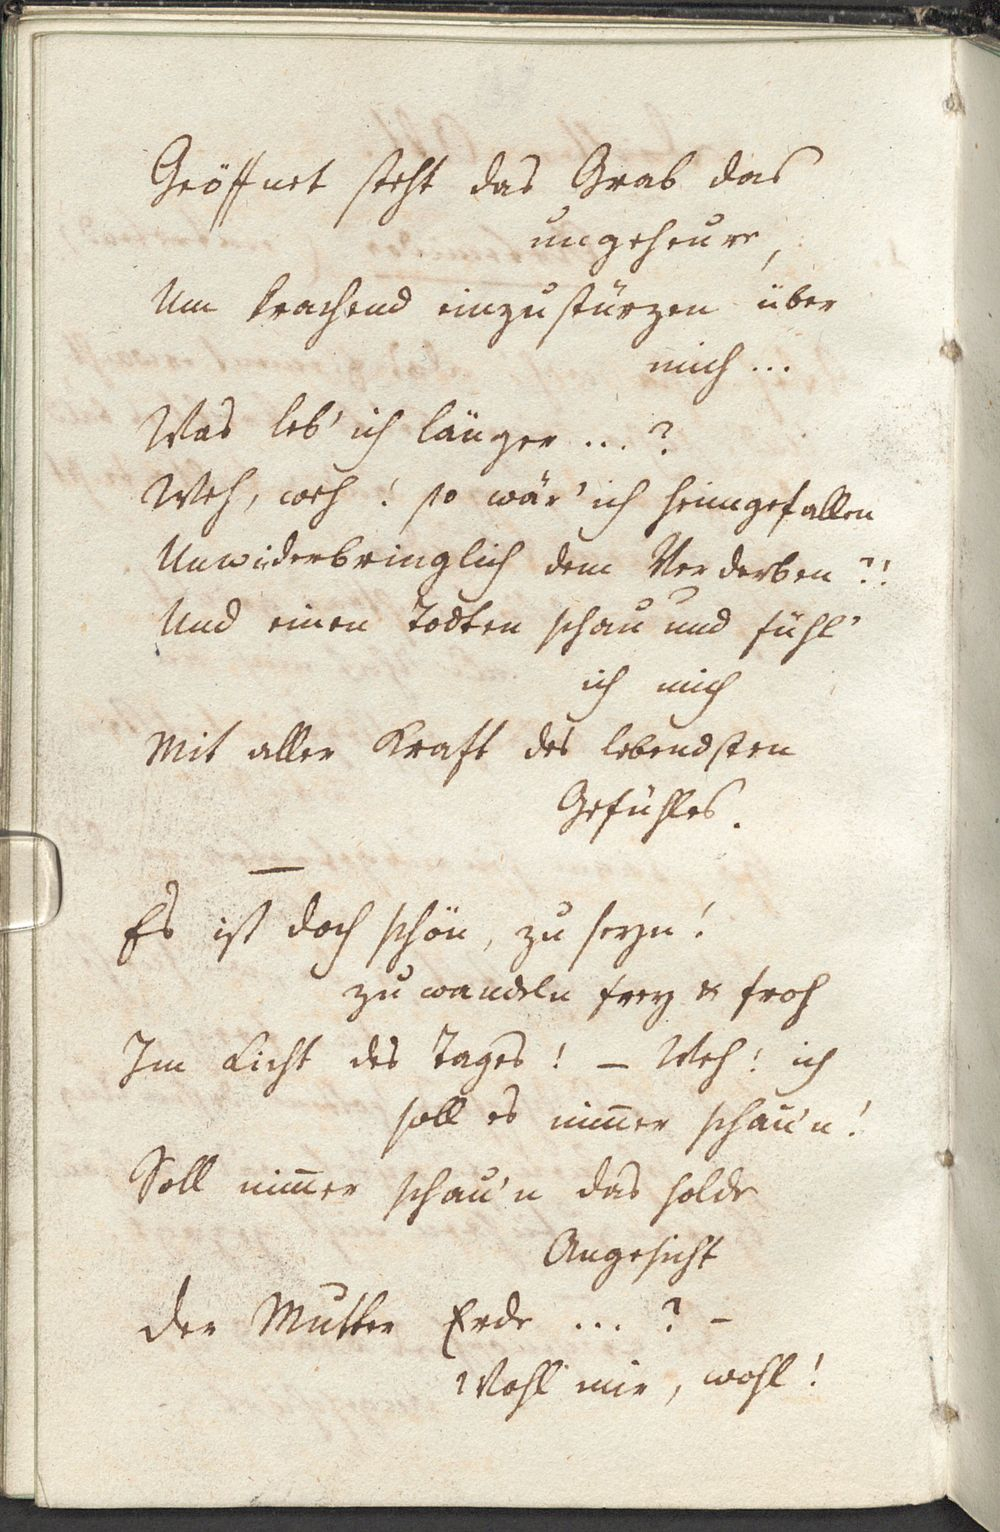 Geöffnet steht das Grab das
ungeheure,
Um krachend einzustürzen über
mich ...
Was leb' ich länger ... ?
Weh, weh! so wär' ich heimgefallen
Unwiderbringlich dem Verderben ?!
Und einen Todten schau und fühl'
ich mich
Mit aller Kraft des lebendsten
Gefühles.
—
Es ist doch schön, zu seyn!
zu wandeln frey & froh
Im Licht des Tages! – Weh! ich
soll es nim̅er schau'n!
Soll nim̅er schau'n das holde
Angesicht
der Mutter Erde ... ? –
Wohl mir, wohl!